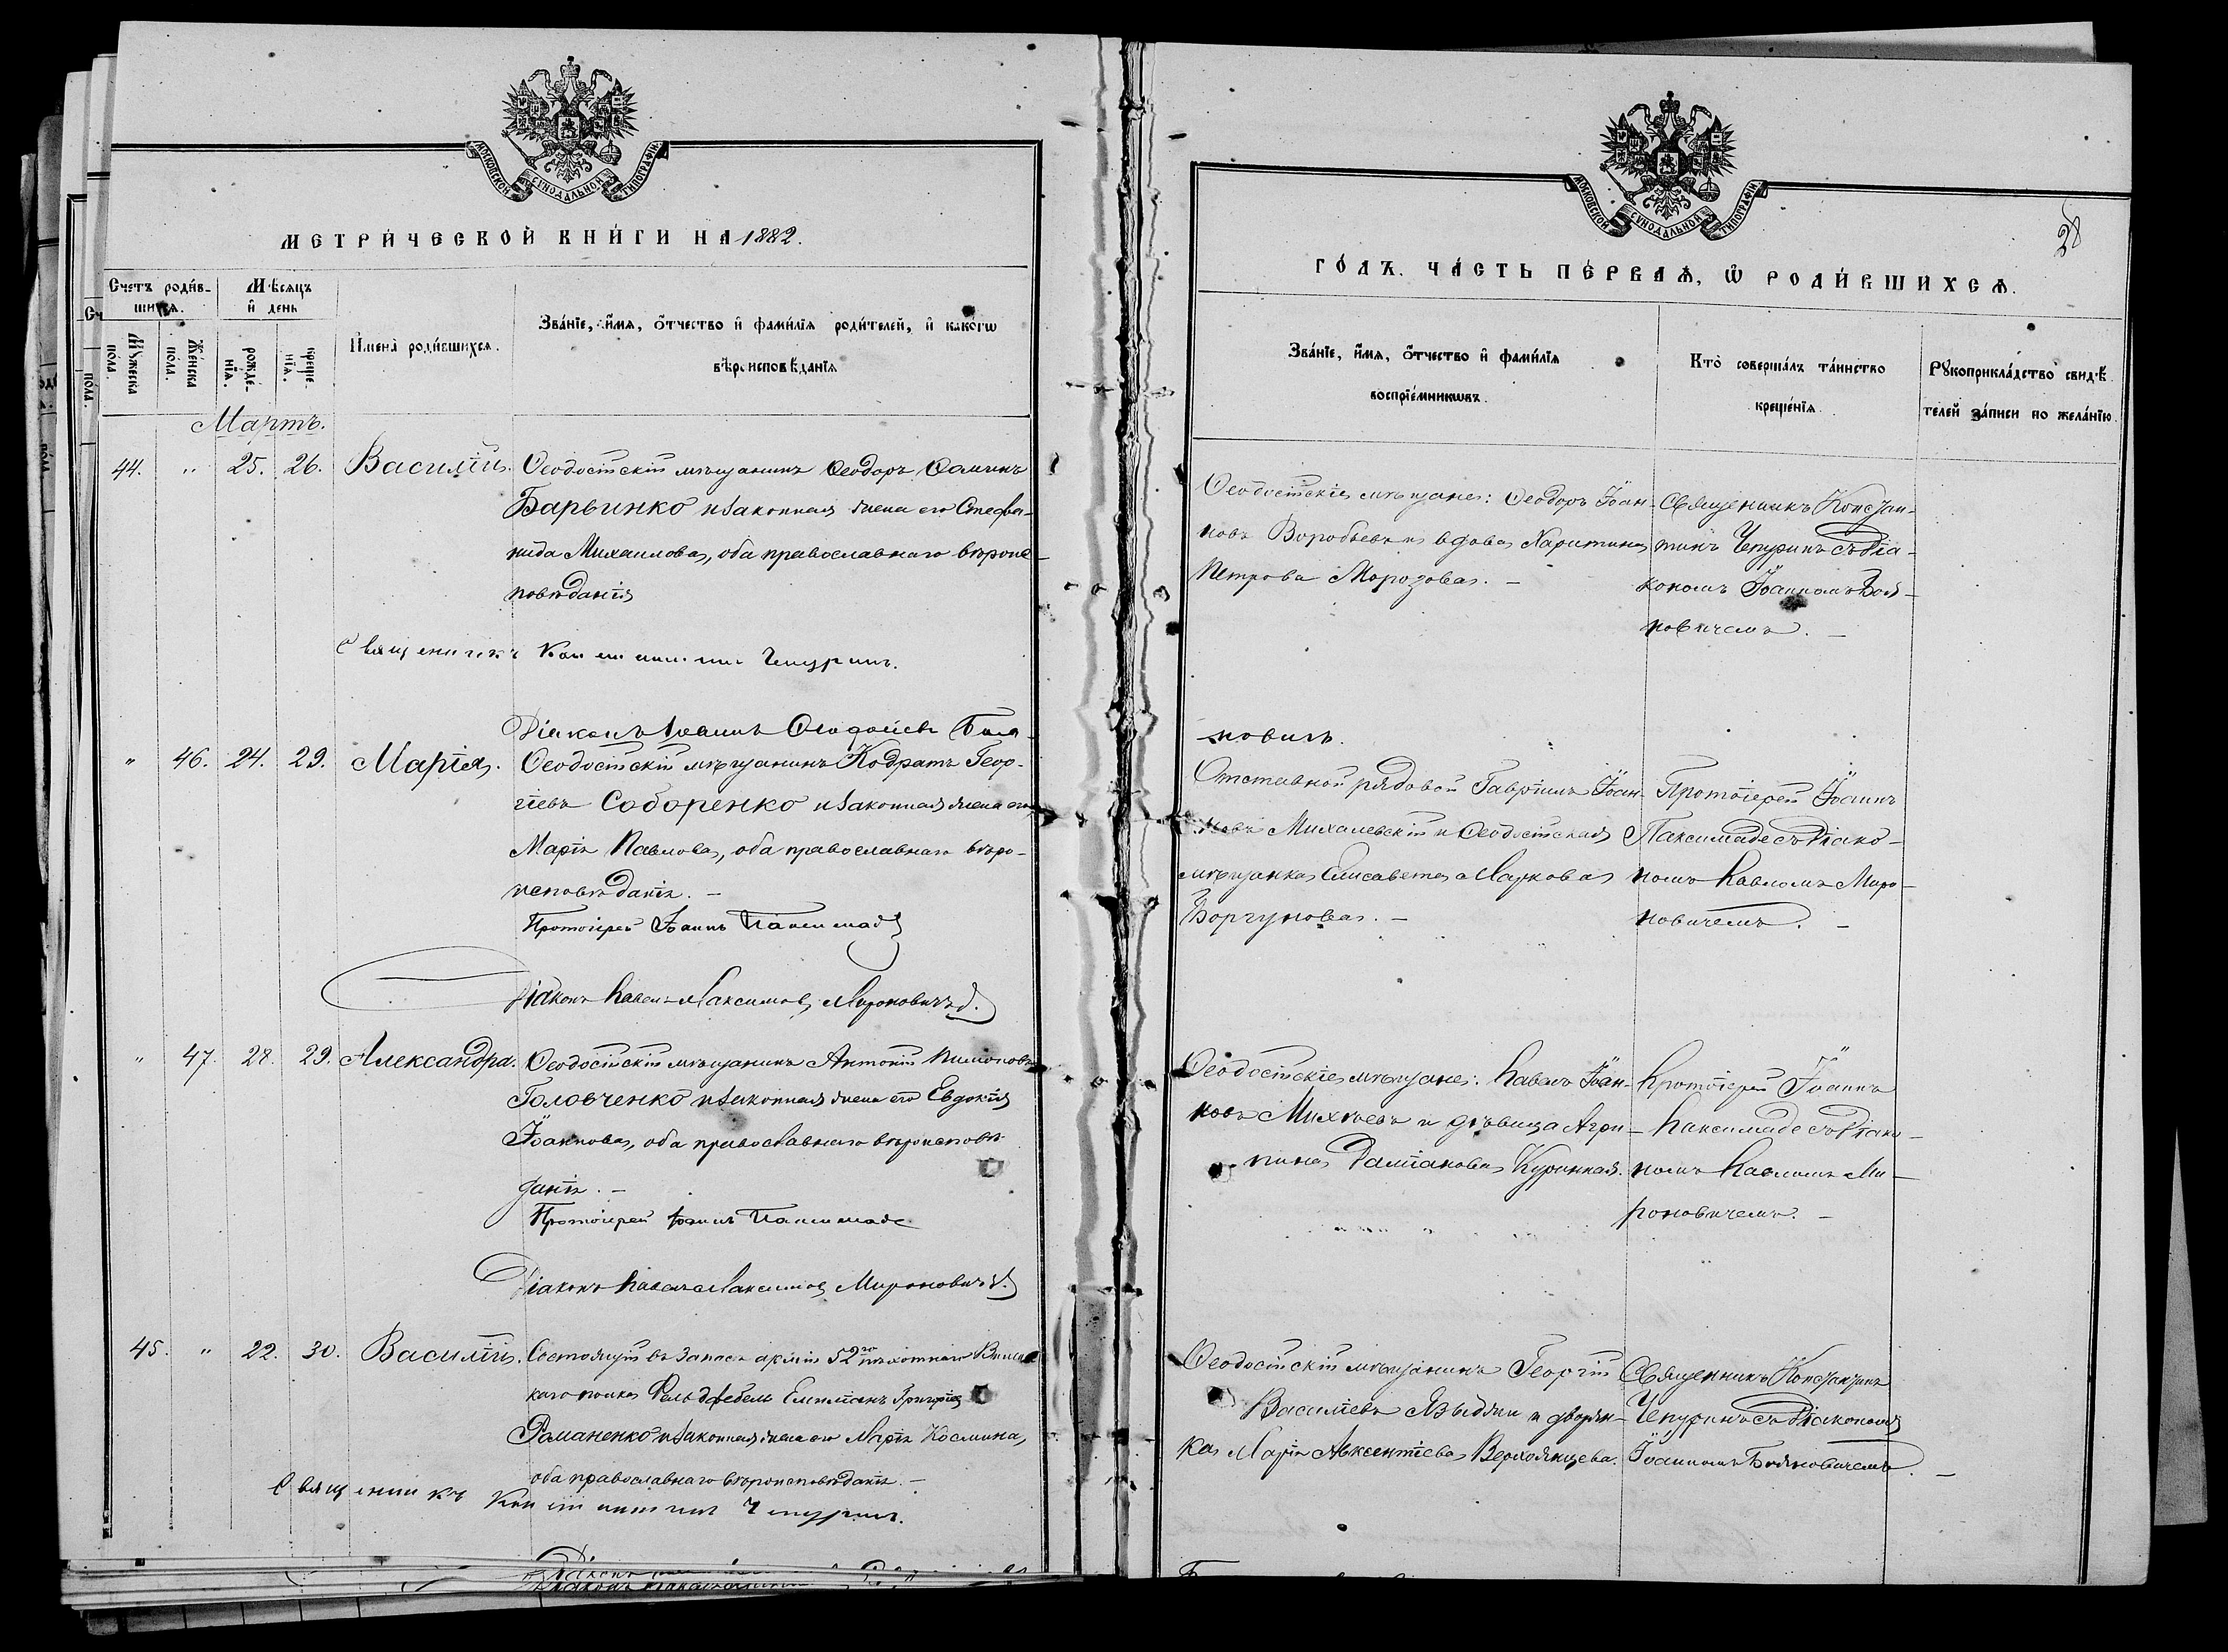 МОСКОВСКОЙ СѴНОДАЛЬНОЙ ТИПОГРАФІИ
МЕТРИ́ЧЕСКОЙ КНИ́ГИ НА 1882.
Счетъ роди́вшихсѧ.
Мѣсѧцъ и҆ день
Мꙋжеска пола.
Же́нска пола.
рожде́нїѧ.
креще́нїѧ.
И҆мена̀ роди́вшихсѧ.
Зва́нїе, и҆́мѧ, ѻ҆́тчество и҆ фами́лїѧ роди́телей, и҆ како́гѡ
вѣроисповѣ́данїѧ
Мартъ.
44. " 25. 26. Василій. Ѳеодосійскій мѣщанинъ Ѳеодоръ Ѳоминъ
Барвинко и законная жена его Стефа-
нида Михаилова, оба православнаго вѣроис-
повѣданія
Священникъ Константинъ Чепуринъ.
Діаконъ Іоаннъ Боя-
" 46. 24. 29. Марія. Ѳеодосійскій мѣщанинъ Кодратъ Геор-
гіевъ Соборенко и законная жена его
Марія Павлова, оба православнаго вѣро-
исповѣданія. –
Протоіерей Іоаннъ Паксимаде
Діаконъ Павелъ Максимовъ Мироновичъ.
" 47. 28. 29. Александра. Ѳеодосійскій мѣщанинъ Антоній Пимоновъ
Головченко и законная жена его Евдокія
Іоаннова, оба православнаго вѣроисповѣ-
данія. –
Протоіерей Іоаннъ Паксимаде
Діаконъ Павелъ Максимовъ Мироновичъ.
45. " 22. 30. Василій. Состоящій въ запасѣ арміи 52го пѣхотнаго Виленс-
каго полка Фельдфебель Емиліанъ Григорьевъ
Романенко и законная жена его Марія Космина,
оба православнаго вѣроисповѣданія. –
Священникъ Константинъ Чепуринъ.
МОСКОВСКОЙ СѴНОДАЛЬНОЙ ТИПОГРАФІИ
28
ГО́ДЪ. ЧА́СТЬ ПЕ́РВАѦ, Ѡ҆ РОДИ́ВШИХСѦ.
Зва́нїе, и҆́мѧ, ѻ҆́тчество и҆ фами́лїѧ
воспрїе́мникѡвъ.
Кто̀ соверша́лъ та́инство
креще́нїѧ.
Рꙋкоприкла́дство свидѣ́-
телей за́писи по жела́нїю.
Ѳеодосійскіе мѣщане: Ѳеодоръ Іоан-
новъ Воробьевъ и вдова Харитина
Петрова Морозова. –
Священникъ Констан-
тинъ Чепуринъ съ Діа-
кономъ Іоанномъ Боя-
новичемъ. –
новичъ.
Отставной рядовой Гавріилъ Іоан-
новъ Михалевскій и Ѳеодосійская
мѣщанка Елисавета Маркова
Боргунова. –
Протоіерей Іоаннъ
Паксимаде съ Діако-
номъ Павломъ Миро-
новичемъ. –
Ѳеодосійскіе мѣщане: Павелъ Іоан-
новъ Михѣевъ и дѣвица Агри-
пина Даміанова Куринная.
Протоіерей Іоаннъ
Паксимаде съ Діако-
номъ Павломъ Ми-
роновичемъ. –
Ѳеодосійскій мѣщанинъ Георгій
Василіевъ и дворян-
ка Марія Авксентіева Верхоянцева.
Священникъ Константинъ
Чепуринъ съ Діакономъ
Іоанномъ Бояновичемъ. –